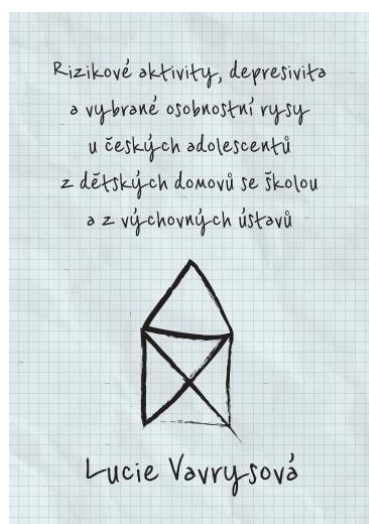 Rizikové aktivity, depresivita
a vybrané osobnostní rysy
u českých adolescentů
z dětských domovů se školou
a z výchovných ústavů
Lucie Vavrysová